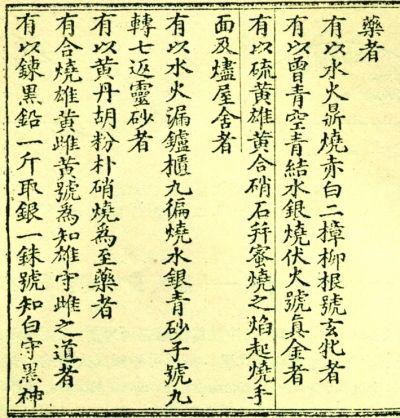 藥者
有以水火鼎燒赤白二樟柳根號玄牝者
有以曾青空青結水銀燒伏火號真金者
有以硫黃雄黃合硝石幷蜜燒之焰起燒手
面及燼屋舍者
有以水火漏鑪櫃九徧燒水銀青砂子號九
轉七返靈砂者
有以黃丹胡粉朴硝燒爲至藥者
有合燒雄黃雌黃號爲知雄守雌之道者
有以鍊黑鉛一斤取銀一銖號知白守黑神